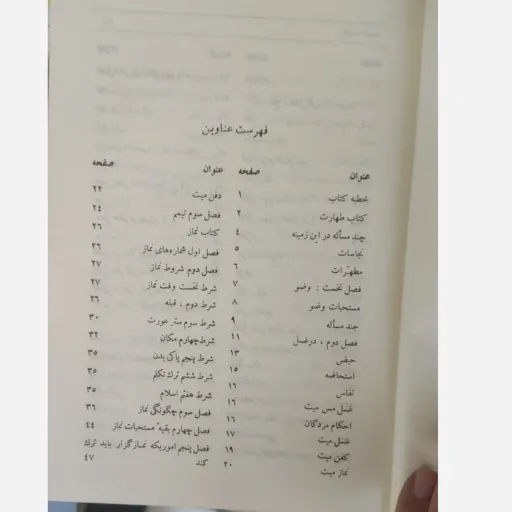 فهرست عناوین
عنوان صفحه
خطبه کتاب ۱
کتاب طهارت ۲
چند مسأله در این زمینه ۴
نجاسات ۵
مطهّرات ۶
فصل نخست : وضو ۷
مستحبات وضو ۸
چند مسأله ۹
فصل دوم ، در غسل ۱۱
حیض ۱۳
استحاضه ۱۵
نفاس ۱۶
غسل مس میت ۱۶
احکام مردگان ۱۶
غسل میت ۱۷
کفن میت ۱۹
نماز میت ۲۰
عنوان صفحه
دفن میت ۲۲
فصل سوم تیمم ۲۴
کتاب نماز ۲۶
فصل اول شماره‌های نماز ۲۶
فصل دوم شروط نماز ۲۷
شرط نخست وقت نماز ۲۷
شرط دوم . قبله ۲۶
شرط سوم ستر عورت ۳۰
شرط چهارم مکان ۳۲
شرط پنجم پاکی بدن ۳۵
شرط ششم ترك تکلم ۳۵
شرط هفتم اسلام ۳۵
فصل سوم چگونگی نماز ۳۶
فصل چهارم بقیهٔ مستحبات نماز ۴۴
فصل پنجم اموریکه نمازگزار باید ترك
کند ۴۷